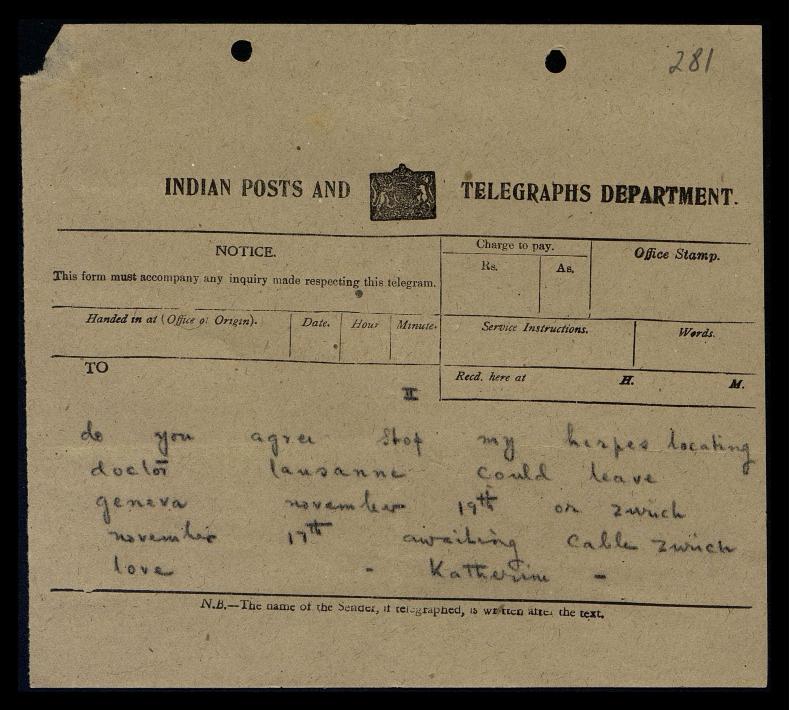 281
INDIAN POSTS AND TELEGRAPHS DEPARTMENT.
NOTICE.
This form must accompany any inquiry made respecting this telegram.
Charge to pay.
Rs. As.
Office Stamp.
Handed in at (Office of Origin). Date. Hour Minute.
Service Instructions. Words.
TO
Recd. here at H. M.
II
do you agree stop my herpes locating
doctor lausanne could leave
geneva november 19th or zurich
november 17th awaiting cable zurich
love - Katherine -
N.B.—The name of the Sender, if telegraphed, is written after the text.